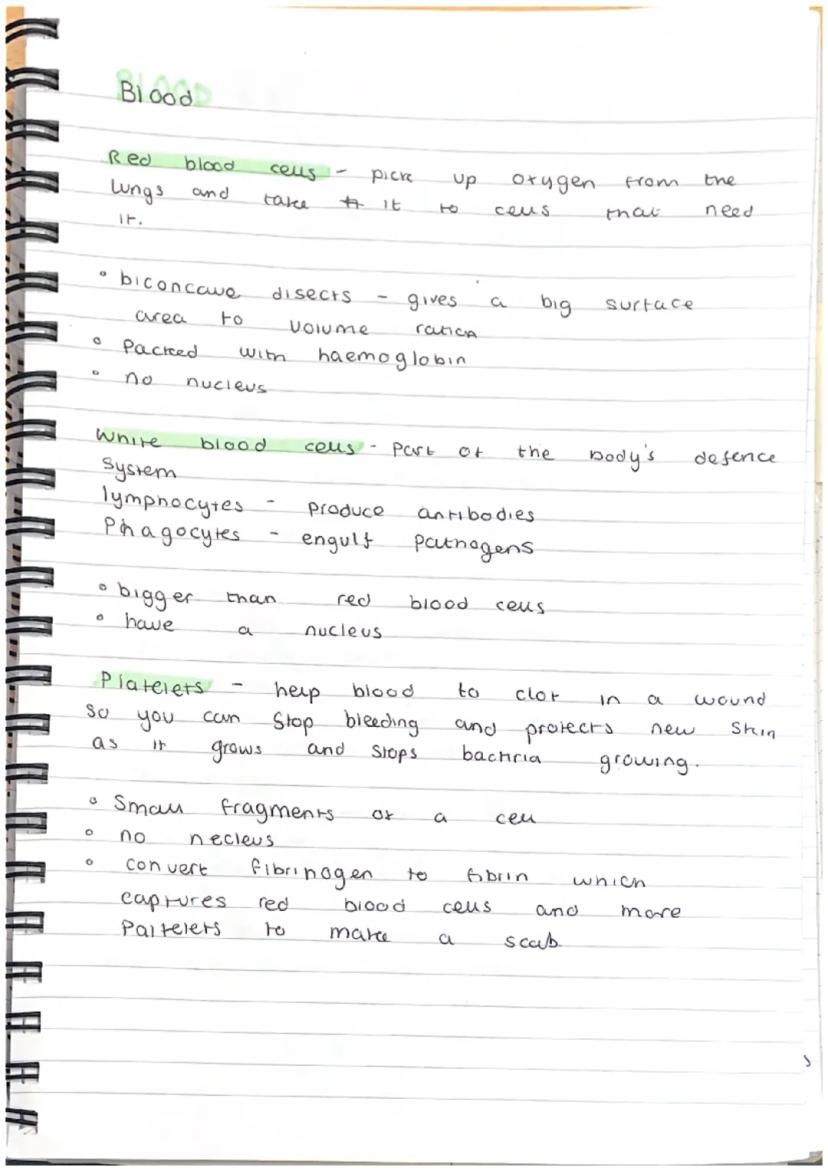 BLOOD
Blood
Red blood cells - pick up oxygen from the
lungs and take it to cells that need
it.
° biconcave disects - gives a big surface
area to volume ration
° Packed with haemoglobin
° no nucleus
White blood cells - Part of the body's defence
System
lymphocytes - produce antibodies
Phagocytes - engulf pathogens
° bigger than red blood cells
° have a nucleus
Platelets - help blood to clot in a wound
so you can stop bleeding and protects new skin
as it grows and stops bactria growing.
° Small fragments of a cell
° no necleus
° convert fibrinogen to fibrin which
captures red blood cells and more
Paltelets to make a scab